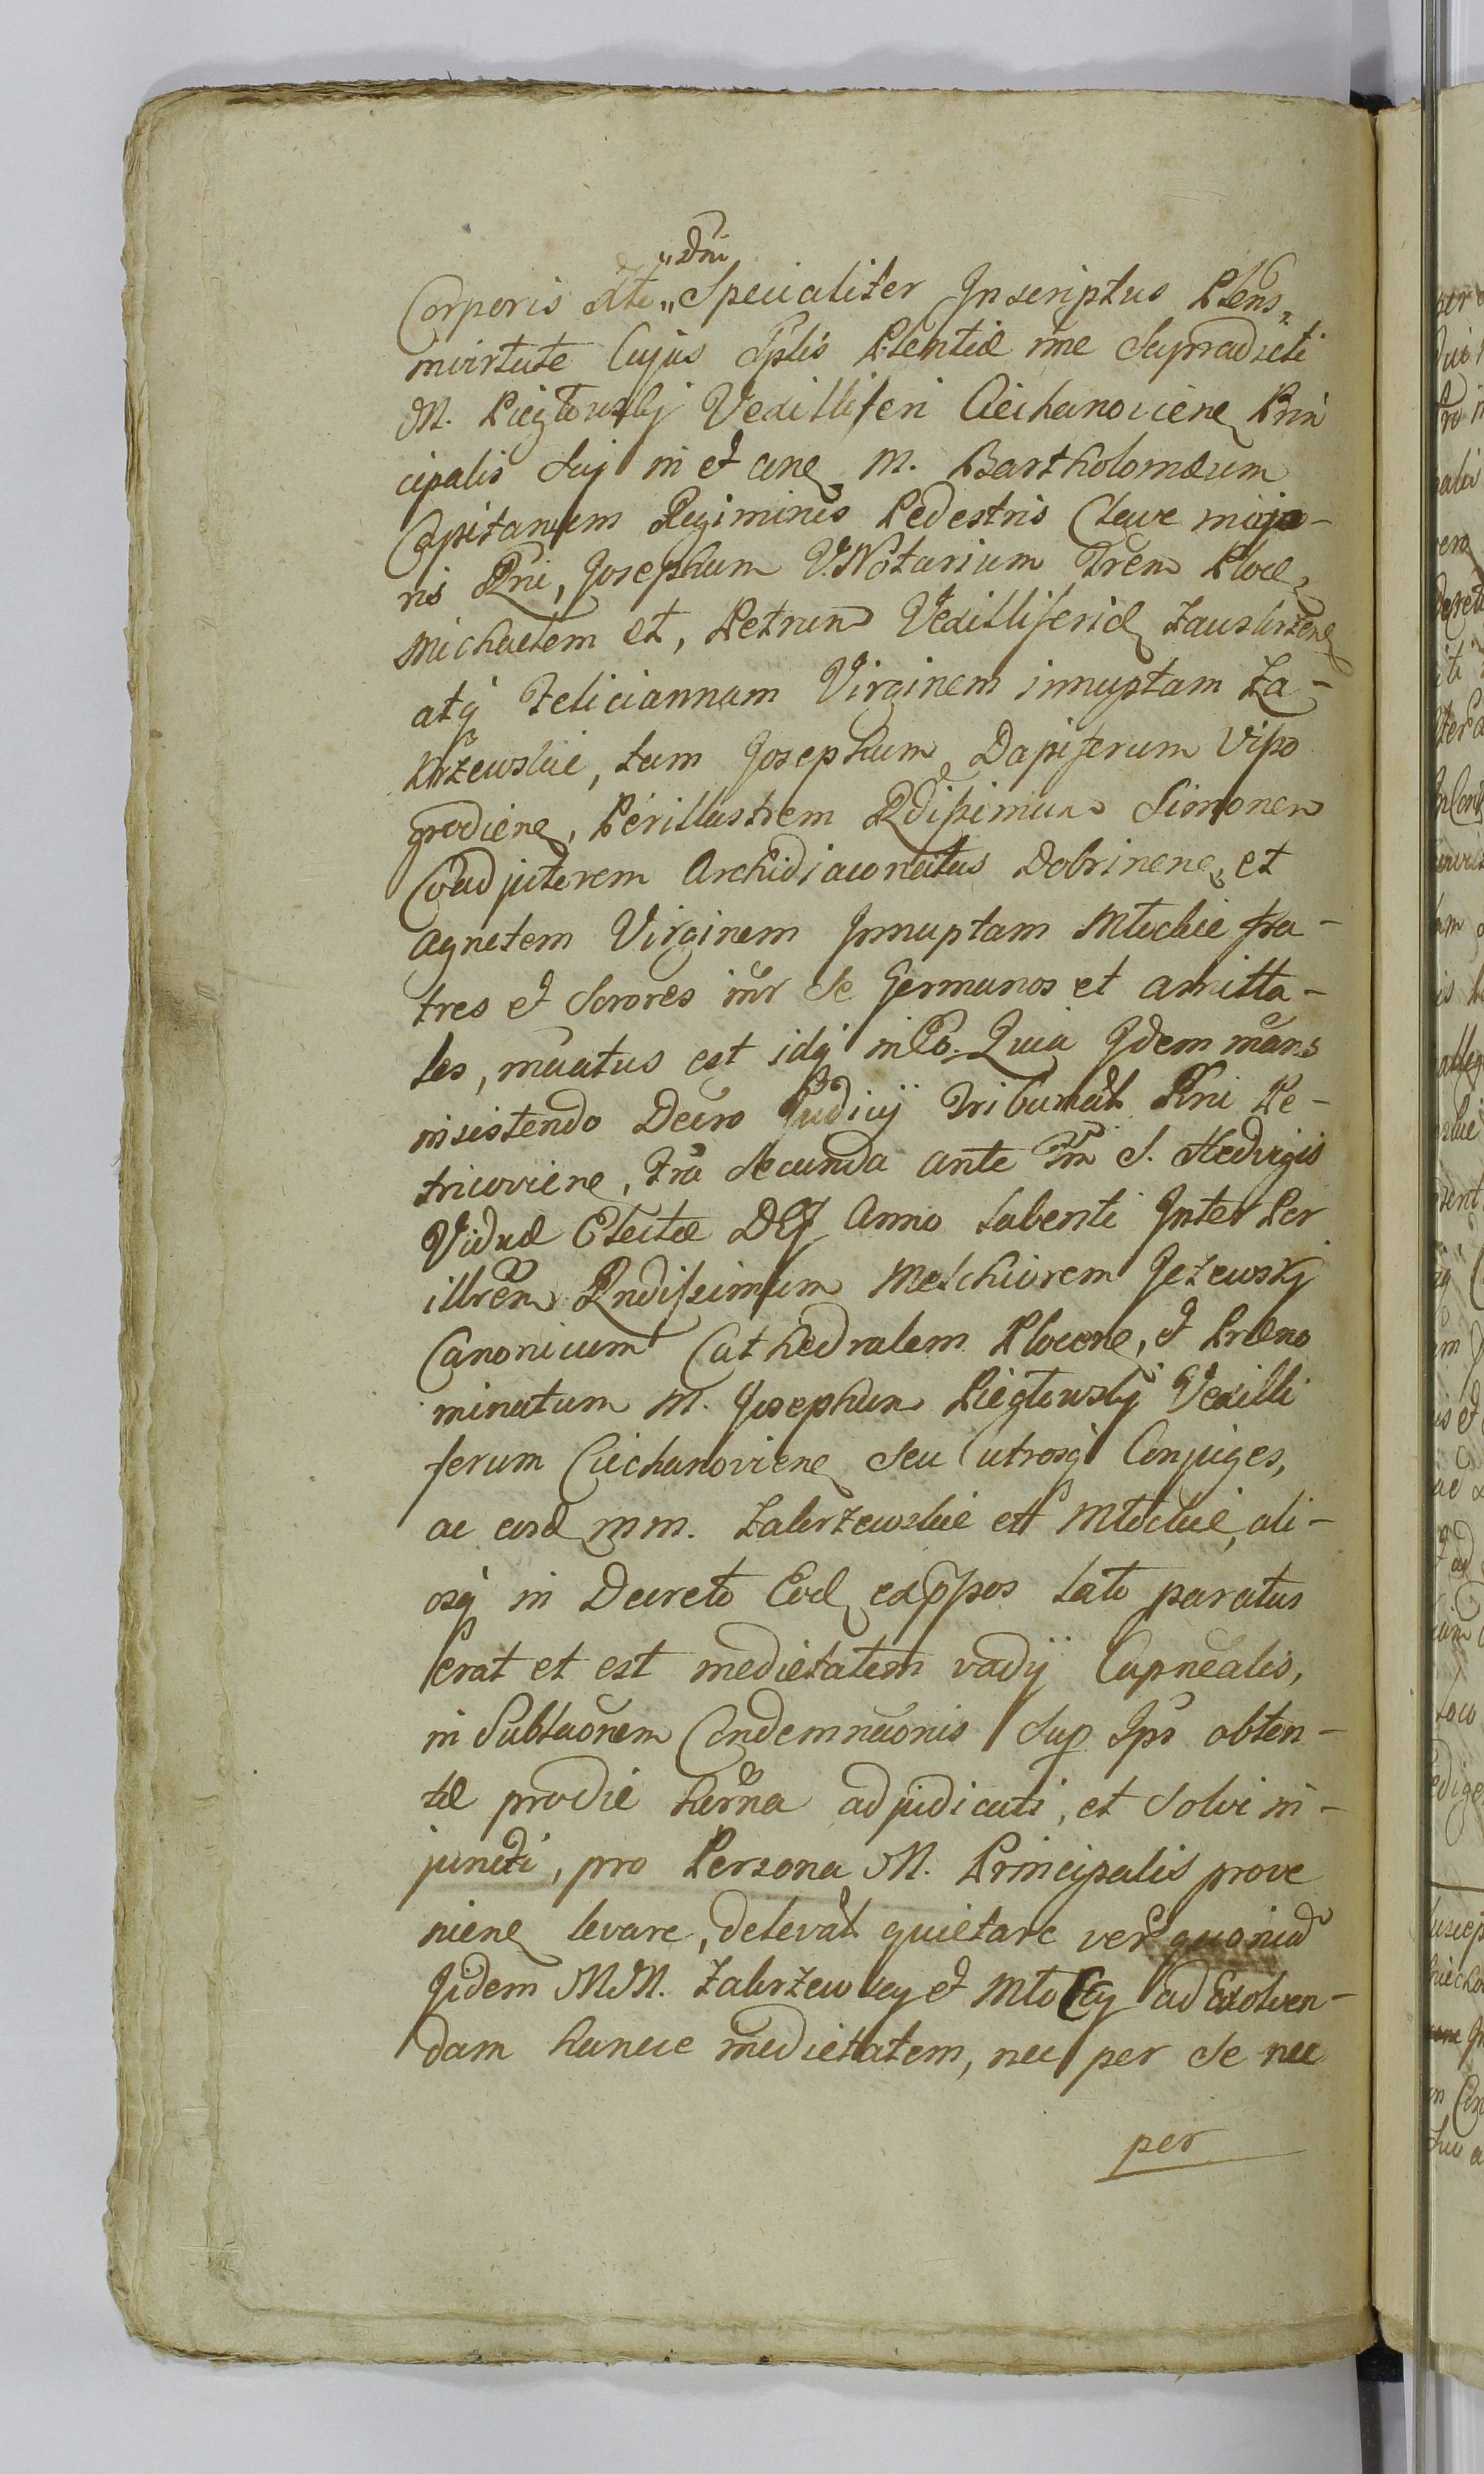 "Dni
Corporis Xti "Specialiter Inscriptus Plens,
invirtute Cujus Splis Plentiæ nne Supradicti
M. Piegłowskj Vexilliferi Ciechanoviene Prin
cipalis Sui in et cone M. Bartholomæum
Capitaneum Regiminis Pedestris Clave majo-
ris Rni, Josephum V.Notarium Trem Ploce
Michaelem et, Petrum Vexilliferid Zauskrzene
atq Feliciannam Virginem innuptam Za-
krzewskie, tum Josephum Dapiferum Viszo
grodiene, Perillustrem Rdissimum Simonem
Coadjutorem Archidiaconatus Dobrinene, et
Agnetem Virginem Innuptam Młockie fra-
tres et Sorores inr Se Germanos et Amitta-
les, mãatus est idq in Eo. Quia Idem mãns
insistendo Decro Judicij Tribunal Rni Pe-
tricoviene, Fria Secunda ante Fm S. Hedvigis
Viduæ Electæ DEJ Anno labenti Inter Per
illrem Rndissimum Melchiorem Jeżewskj
Canonicum Cathedralem Plocene, et Præno
minatum M. Josephum Piegłowskj Vexilli
ferum Ciechanoviene Seu utrosq Conjuges,
ac eosd MM. Zakrzewskie et Młockie, ali-
osq in Decreto Eod exppsos lato paratus
erat et est medietatem vadij Capnealis,
in Sublaõnem Condemnaõnis Sup Ips obten-
tæ prodie herna adjudicati, et Solvi in-
juncti, pro Persona M. Principalis prove
niene levare, delevat quietare ver quoniã
Iidem MM. Zakrzewscy et Młoccy ad Exolven-
dam hancce medietatem, nec per Se nec
per